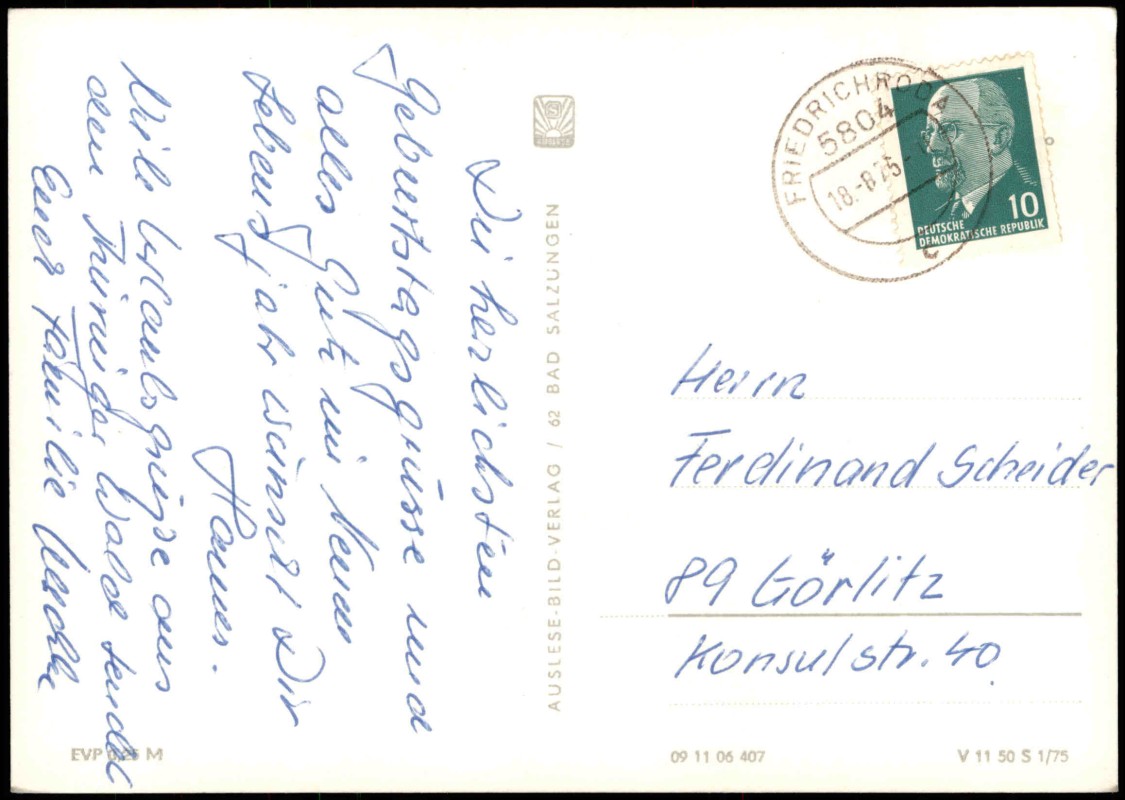 Die herzlichsten
Geburtstagsgrüsse und
alles Gute im Neuen
Lebensjahr wünscht Dir
Hannes.
Viele Urlaubsgrüße aus
dem Thüringer Wald sendet
Euch Familie
AUSLESE-BILD-VERLAG / 62 BAD SALZUNGEN
FRIEDRICHRODA
5804
18.-8.75
c
10
DEUTSCHE
DEMOKRATISCHE REPUBLIK
Herrn
Ferdinand Scheider
89 Görlitz
Konsulstr. 40
EVP 0,25 M
09 11 06 407
V 11 50 S 1/75